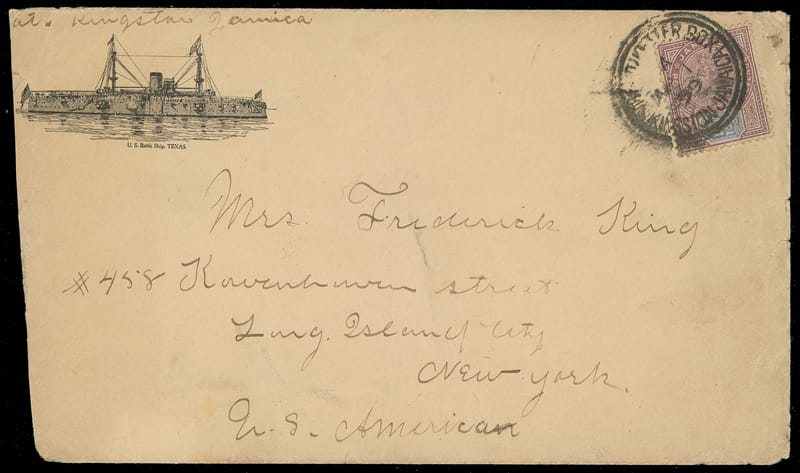 at. Kingston Jamica
U. S. Battle Ship, TEXAS
Mrs. Frederick King
#458 Kowenhoven street
Long. Island City
New York.
U. S. American